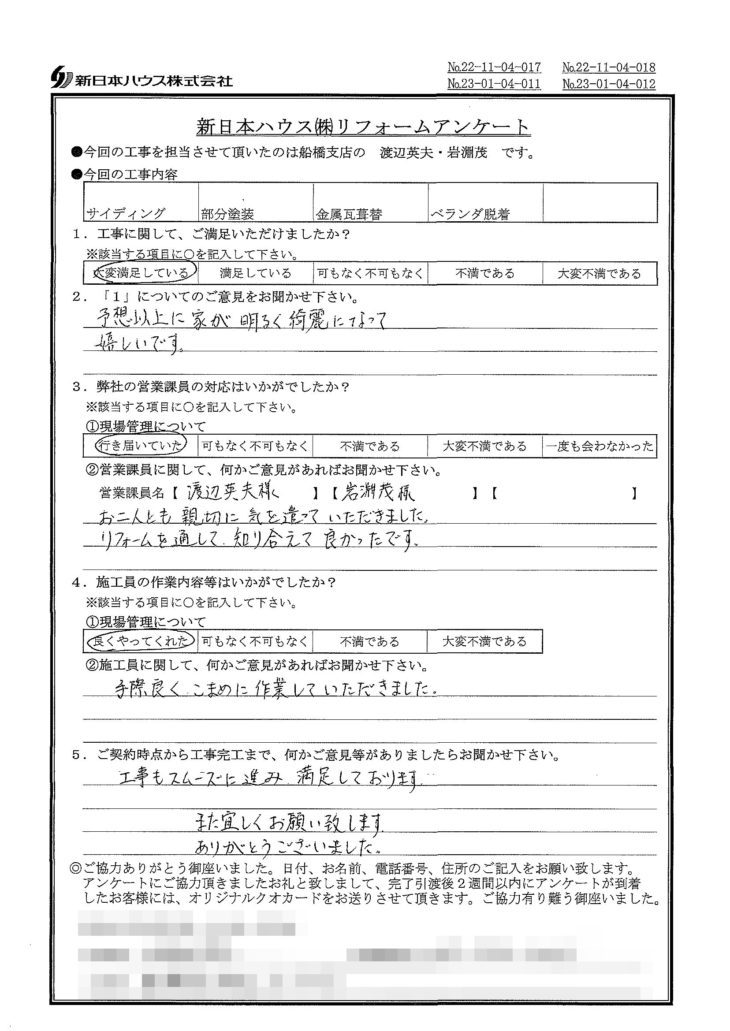 新日本ハウス株式会社
No.22-11-04-017 No.22-11-04-018
No.23-01-04-011 No.23-01-04-012
新日本ハウス㈱リフォームアンケート
●今回の工事を担当させて頂いたのは船橋支店の 渡辺英夫・岩淵茂 です。
●今回の工事内容
サイディング 部分塗装 金属瓦葺替 ベランダ脱着
1．工事に関して、ご満足いただけましたか？
※該当する項目に○を記入して下さい。
大変満足している 満足している 可もなく不可もなく 不満である 大変不満である
2．「1」についてのご意見をお聞かせ下さい。
予想以上に家が明るく綺麗になって
嬉しいです。
3．弊社の営業課員の対応はいかがでしたか？
※該当する項目に○を記入して下さい。
①現場管理について
行き届いていた 可もなく不可もなく 不満である 大変不満である 一度も会わなかった
②営業課員に関して、何かご意見があればお聞かせ下さい。
営業課員名【 渡辺英夫様 】【 岩淵茂様 】【 】
お二人とも親切に気を遣っていただきました。
リフォームを通して、知り合えて良かったです。
4．施工員の作業内容等はいかがでしたか？
※該当する項目に○を記入して下さい。
①現場管理について
良くやってくれた 可もなく不可もなく 不満である 大変不満である
②施工員に関して、何かご意見があればお聞かせ下さい。
手際良く、こまめに作業していただきました。
5．ご契約時点から工事完工まで、何かご意見等がありましたらお聞かせ下さい。
工事もスムーズに進み、満足しております。
また宜しくお願い致します
ありがとうございました。
◎ご協力ありがとう御座いました。日付、お名前、電話番号、住所のご記入をお願い致します。
アンケートにご協力頂きましたお礼と致しまして、完了引渡後２週間以内にアンケートが到着
したお客様には、オリジナルクオカードをお送りさせて頂きます。ご協力有り難う御座いました。